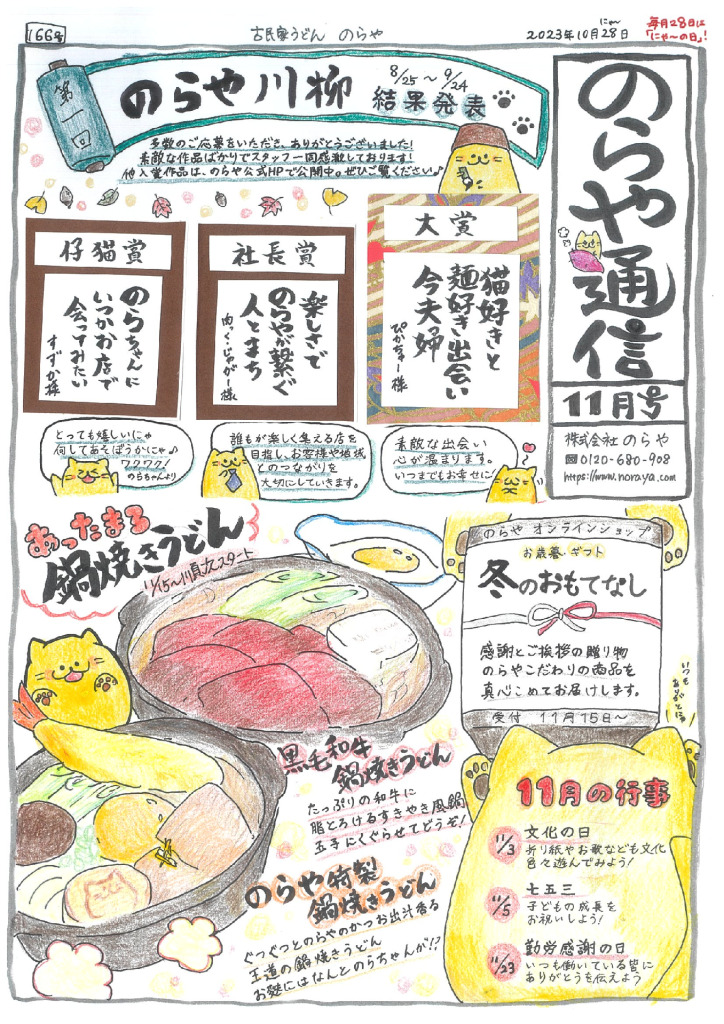 166号
古民家うどん のらや
2023年10月28日
にゃ〜
毎月28日は
「にゃ〜の日」!
のらや通信
11月号
株式会社 のらや
0120-680-908
https://www.noraya.com
第一回
のらや川柳
8/25〜9/24
結果発表
多数のご応募をいただき、ありがとうございました!
素敵な作品ばかりでスタッフ一同感激しております!
他入賞作品は、のらや公式HPで公開中。ぜひご覧ください♪
大賞
猫好きと
麺好き出会い
今夫婦
ぴかちゅー様
社長賞
楽しさで
のらやが繋ぐ
人とまち
肉っく・じゃがー様
仔猫賞
のらちゃんに
いつかお店で
会ってみたい
すずか様
素敵な出会い
心が温まります。
いつまでもお幸せに!
誰もが楽しく集える店を
目指し、お客様や地域
とのつながりを
大切にしていきます。
とっても嬉しいにゃ
何してあそぼうかにゃ♪
ワクワク!
のらちゃんより
あったまる
鍋焼きうどん
11/15〜順次スタート
黒毛和牛
鍋焼きうどん
たっぷりの和牛に
脂とろけるすきやき風鍋
玉子にくぐらせてどうぞ!
のらや特製
鍋焼きうどん
ぐつぐつとのらやのかつお出汁香る
王道の鍋焼きうどん
お麩にはなんとのらちゃんが!?
のらや オンラインショップ
お歳暮・ギフト
冬のおもてなし
感謝とご挨拶の贈り物
のらやこだわりの商品を
真心こめてお届けします。
受付 11月15日〜
いつも
ありがとにゃ
11月の行事
11/3 文化の日
折り紙やお歌なども文化
色々遊んでみよう!
11/5 七五三
子どもの成長を
お祝いしよう!
11/23 勤労感謝の日
いつも働いている皆に
ありがとうを伝えよう